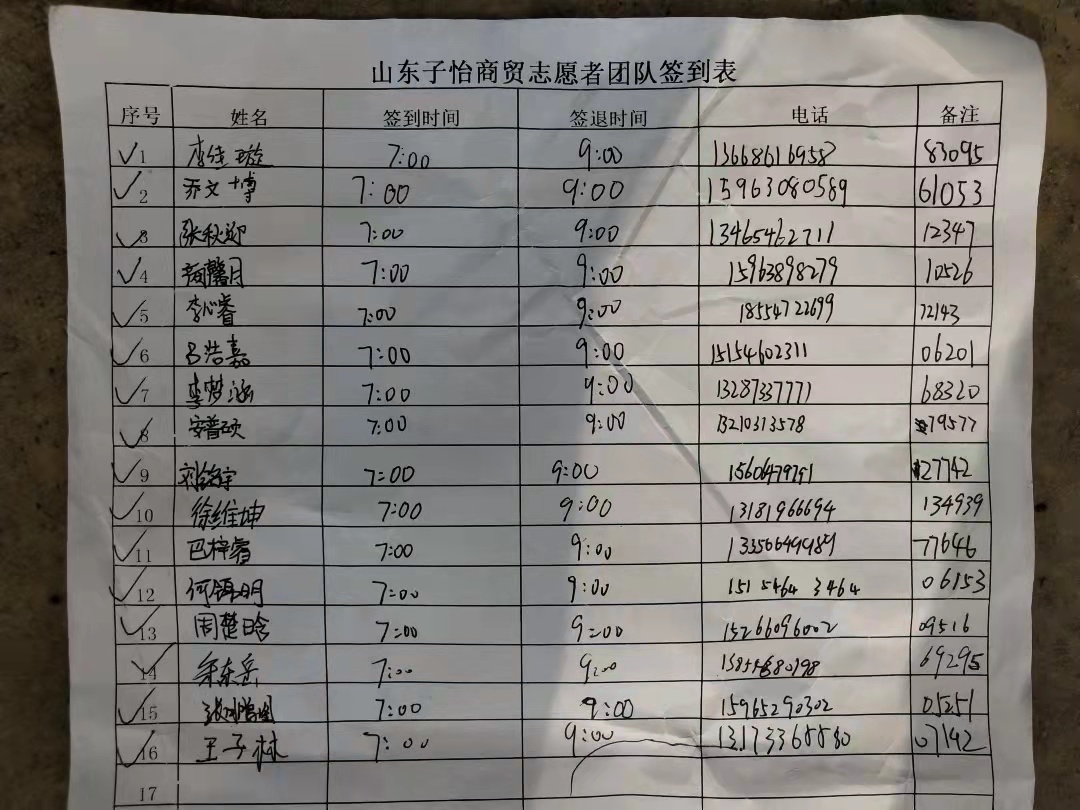 山东子怡商贸志愿者团队签到表
序号 姓名 签到时间 签退时间 电话 备注
1 李佳璇 7:00 9:00 13668616958 83095
2 乔文博 7:00 9:00 15963080589 61053
3 张秋郑 7:00 9:00 13465462711 12347
4 颜馨月 7:00 9:00 15963898279 10526
5 李心睿 7:00 9:00 18554722699 72143
6 吕浩嘉 7:00 9:00 15154602311 06201
7 李梦涵 7:00 9:00 13287337771 68320
8 安普硕 7:00 9:00 13210313578 79577
9 7:00 9:00 27742
10 徐维坤 7:00 9:00 13181966694 134939
11 巴梓睿 7:00 9:00 77646
12 7:00 9:00 1515464 3464 06153
13 周楚晗 7:00 9:00 15266096002 09516
14 7:00 9:00 69295
15 7:00 9:00 15965290302 05251
16 王子林 7:00 9:00 13173368880 07142
17